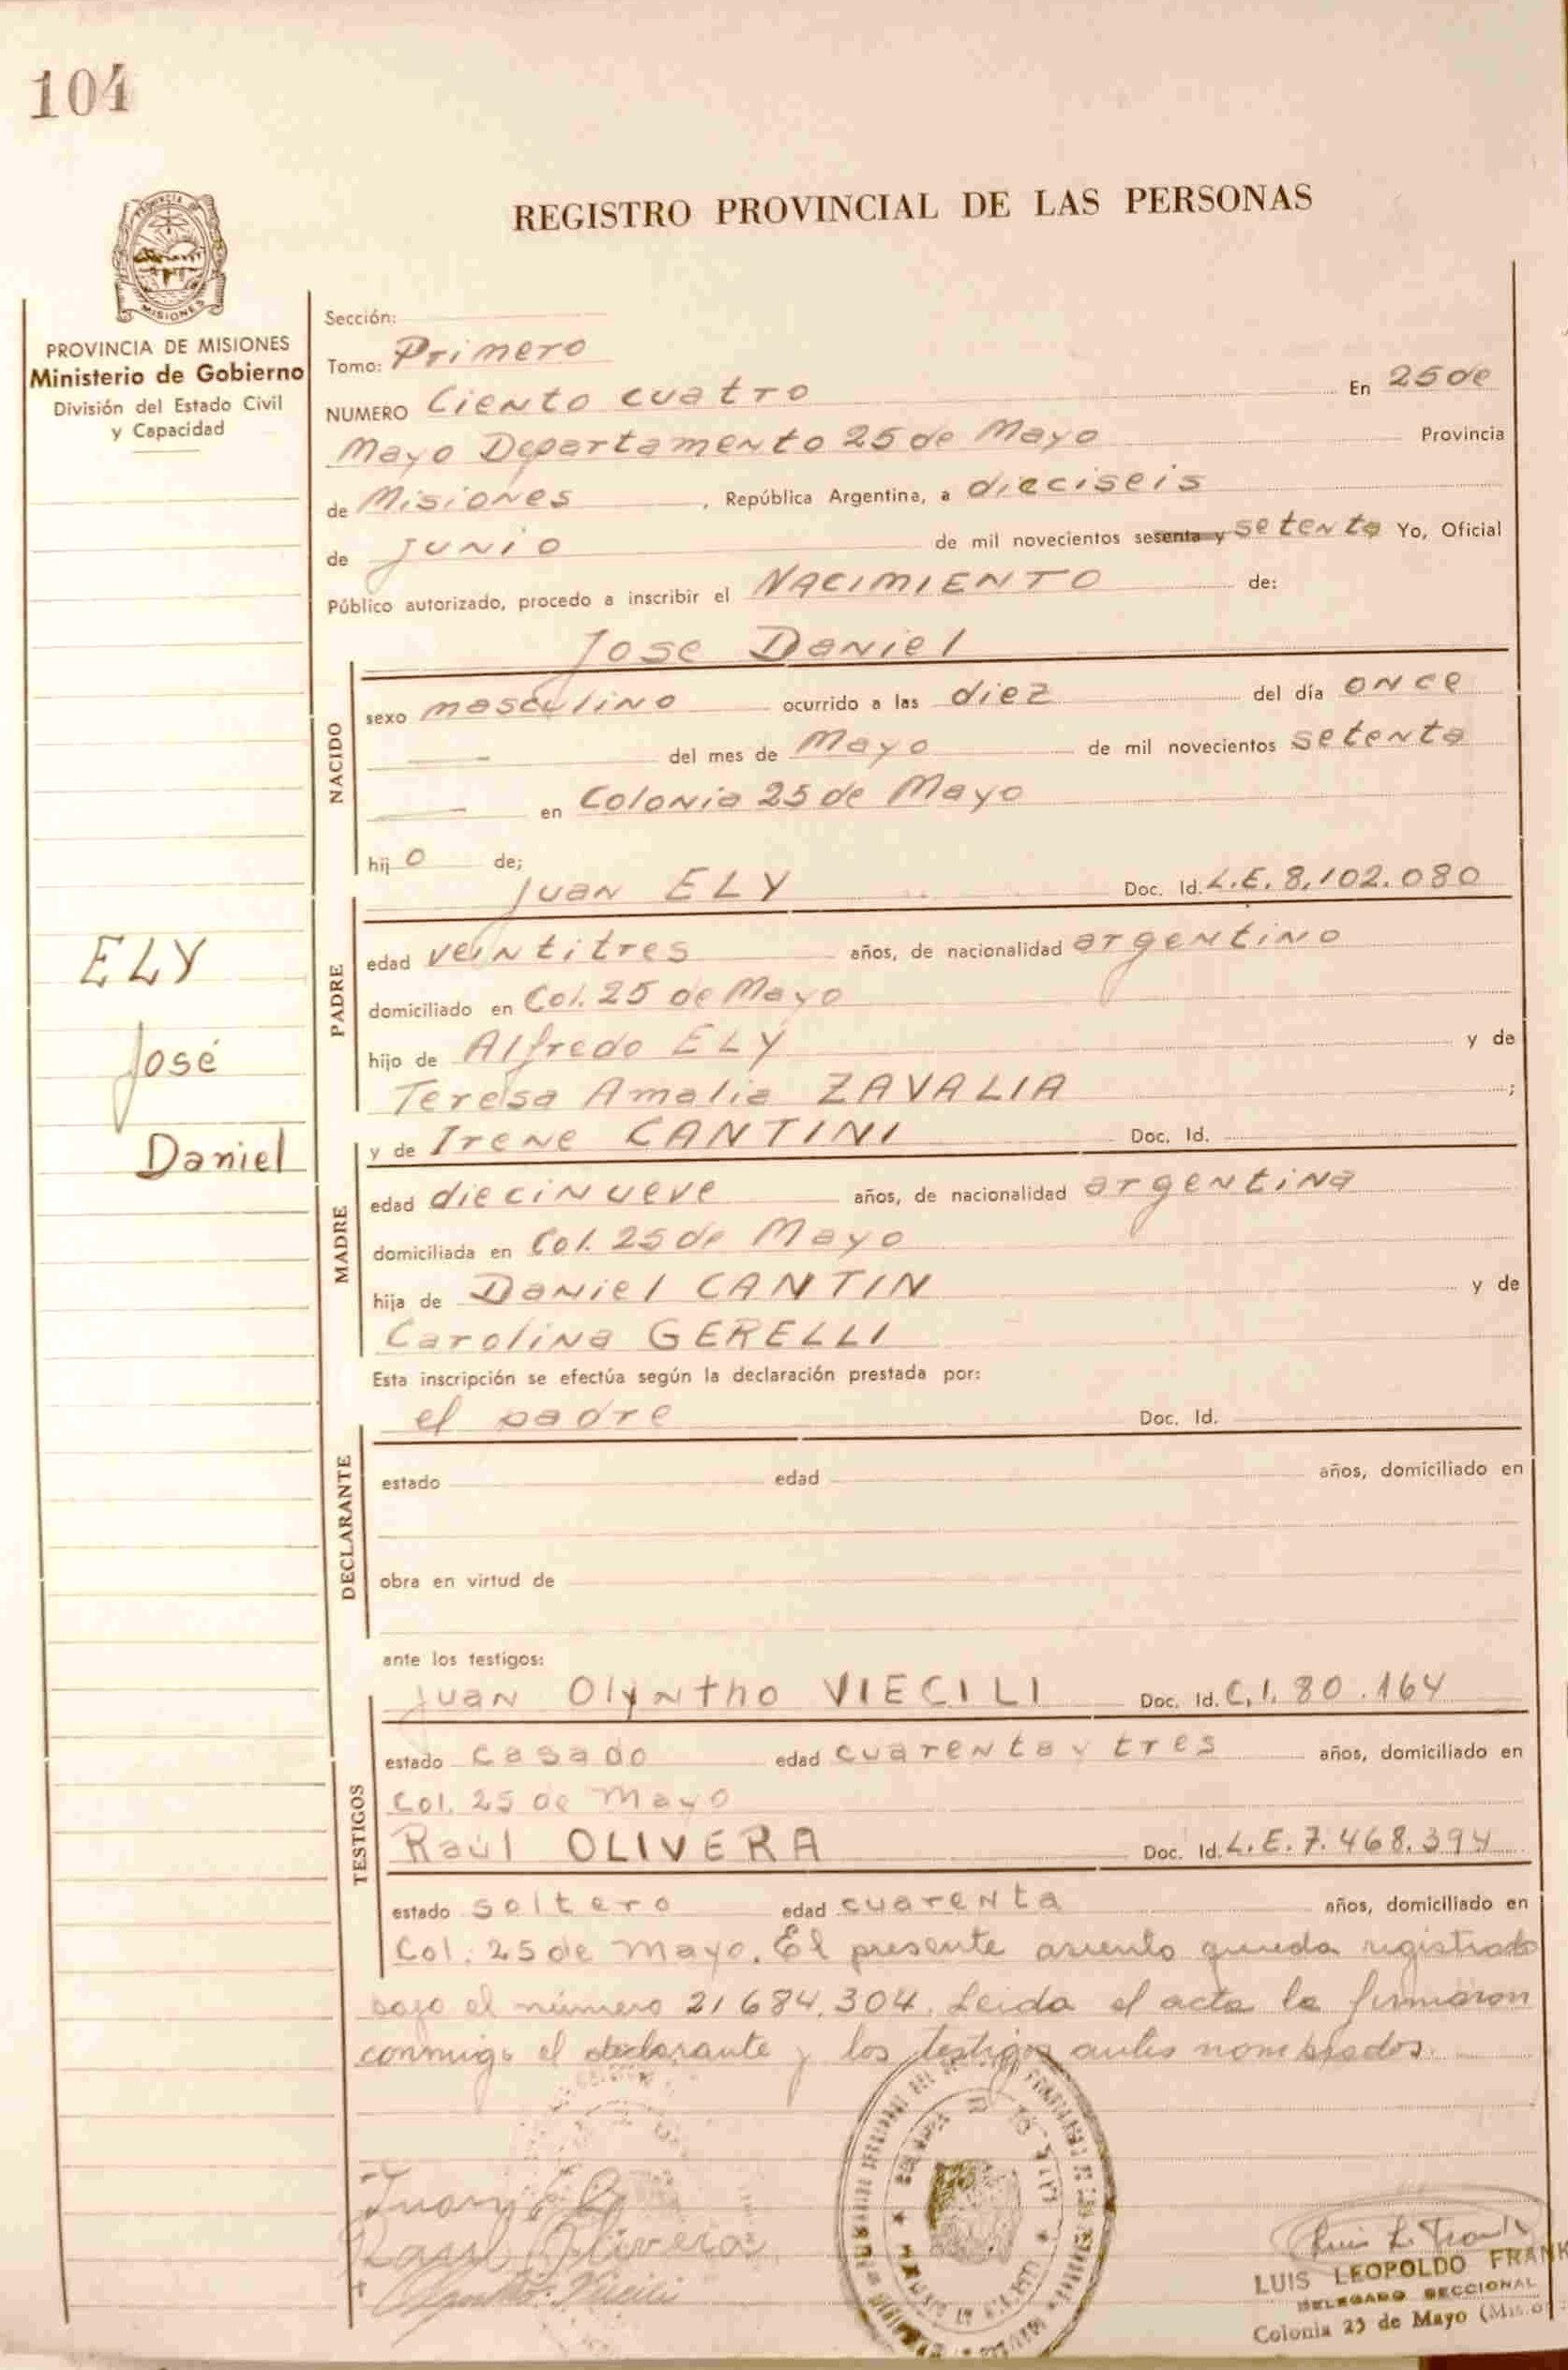 104
REGISTRO PROVINCIAL DE LAS PERSONAS
MISIONES
PROVINCIA DE MISIONES
Ministerio de Gobierno
División del Estado Civil
y Capacidad
ELY
José
Daniel
Sección:
Tomo: Primero
NUMERO Ciento cuatro En 25 de
Mayo Departamento 25 de Mayo Provincia
de Misiones , República Argentina, a dieciseis
de junio de mil novecientos sesenta y setenta Yo, Oficial
Público autorizado, procedo a inscribir el NACIMIENTO de:
Jose Daniel
NACIDO
sexo masculino ocurrido a las diez del día once
del mes de Mayo de mil novecientos setenta
en Colonia 25 de Mayo
hij o de;
Juan ELY Doc. Id. L.E. 8.102.080
PADRE
edad veintitres años, de nacionalidad argentino
domiciliado en Col. 25 de Mayo
hijo de Alfredo ELY y de
Teresa Amalia ZAVALIA ;
y de Irene CANTINI Doc. Id.
MADRE
edad diecinueve años, de nacionalidad argentina
domiciliada en Col. 25 de Mayo
hija de Daniel CANTIN y de
Carolina GERELLI
Esta inscripción se efectúa según la declaración prestada por:
el padre Doc. Id.
DECLARANTE
estado edad años, domiciliado en
obra en virtud de
ante los testigos:
Juan Olyntho VIECILI Doc. Id. C.I. 80.164
TESTIGOS
estado casado edad cuarenta y tres años, domiciliado en
Col. 25 de Mayo
Raúl OLIVERA Doc. Id. L.E. 7.468.394
estado soltero edad cuarenta años, domiciliado en
Col. 25 de Mayo. El presente asiento queda registrado
bajo el número 21684.304. Leida el acta la firmaron
conmigo el declarante y los testigos antes nombrados.
Juan Ely
Raul Olivera
Olyntho Viecili
Luis L. Frank
LUIS LEOPOLDO FRANK
DELEGADO SECCIONAL
Colonia 25 de Mayo